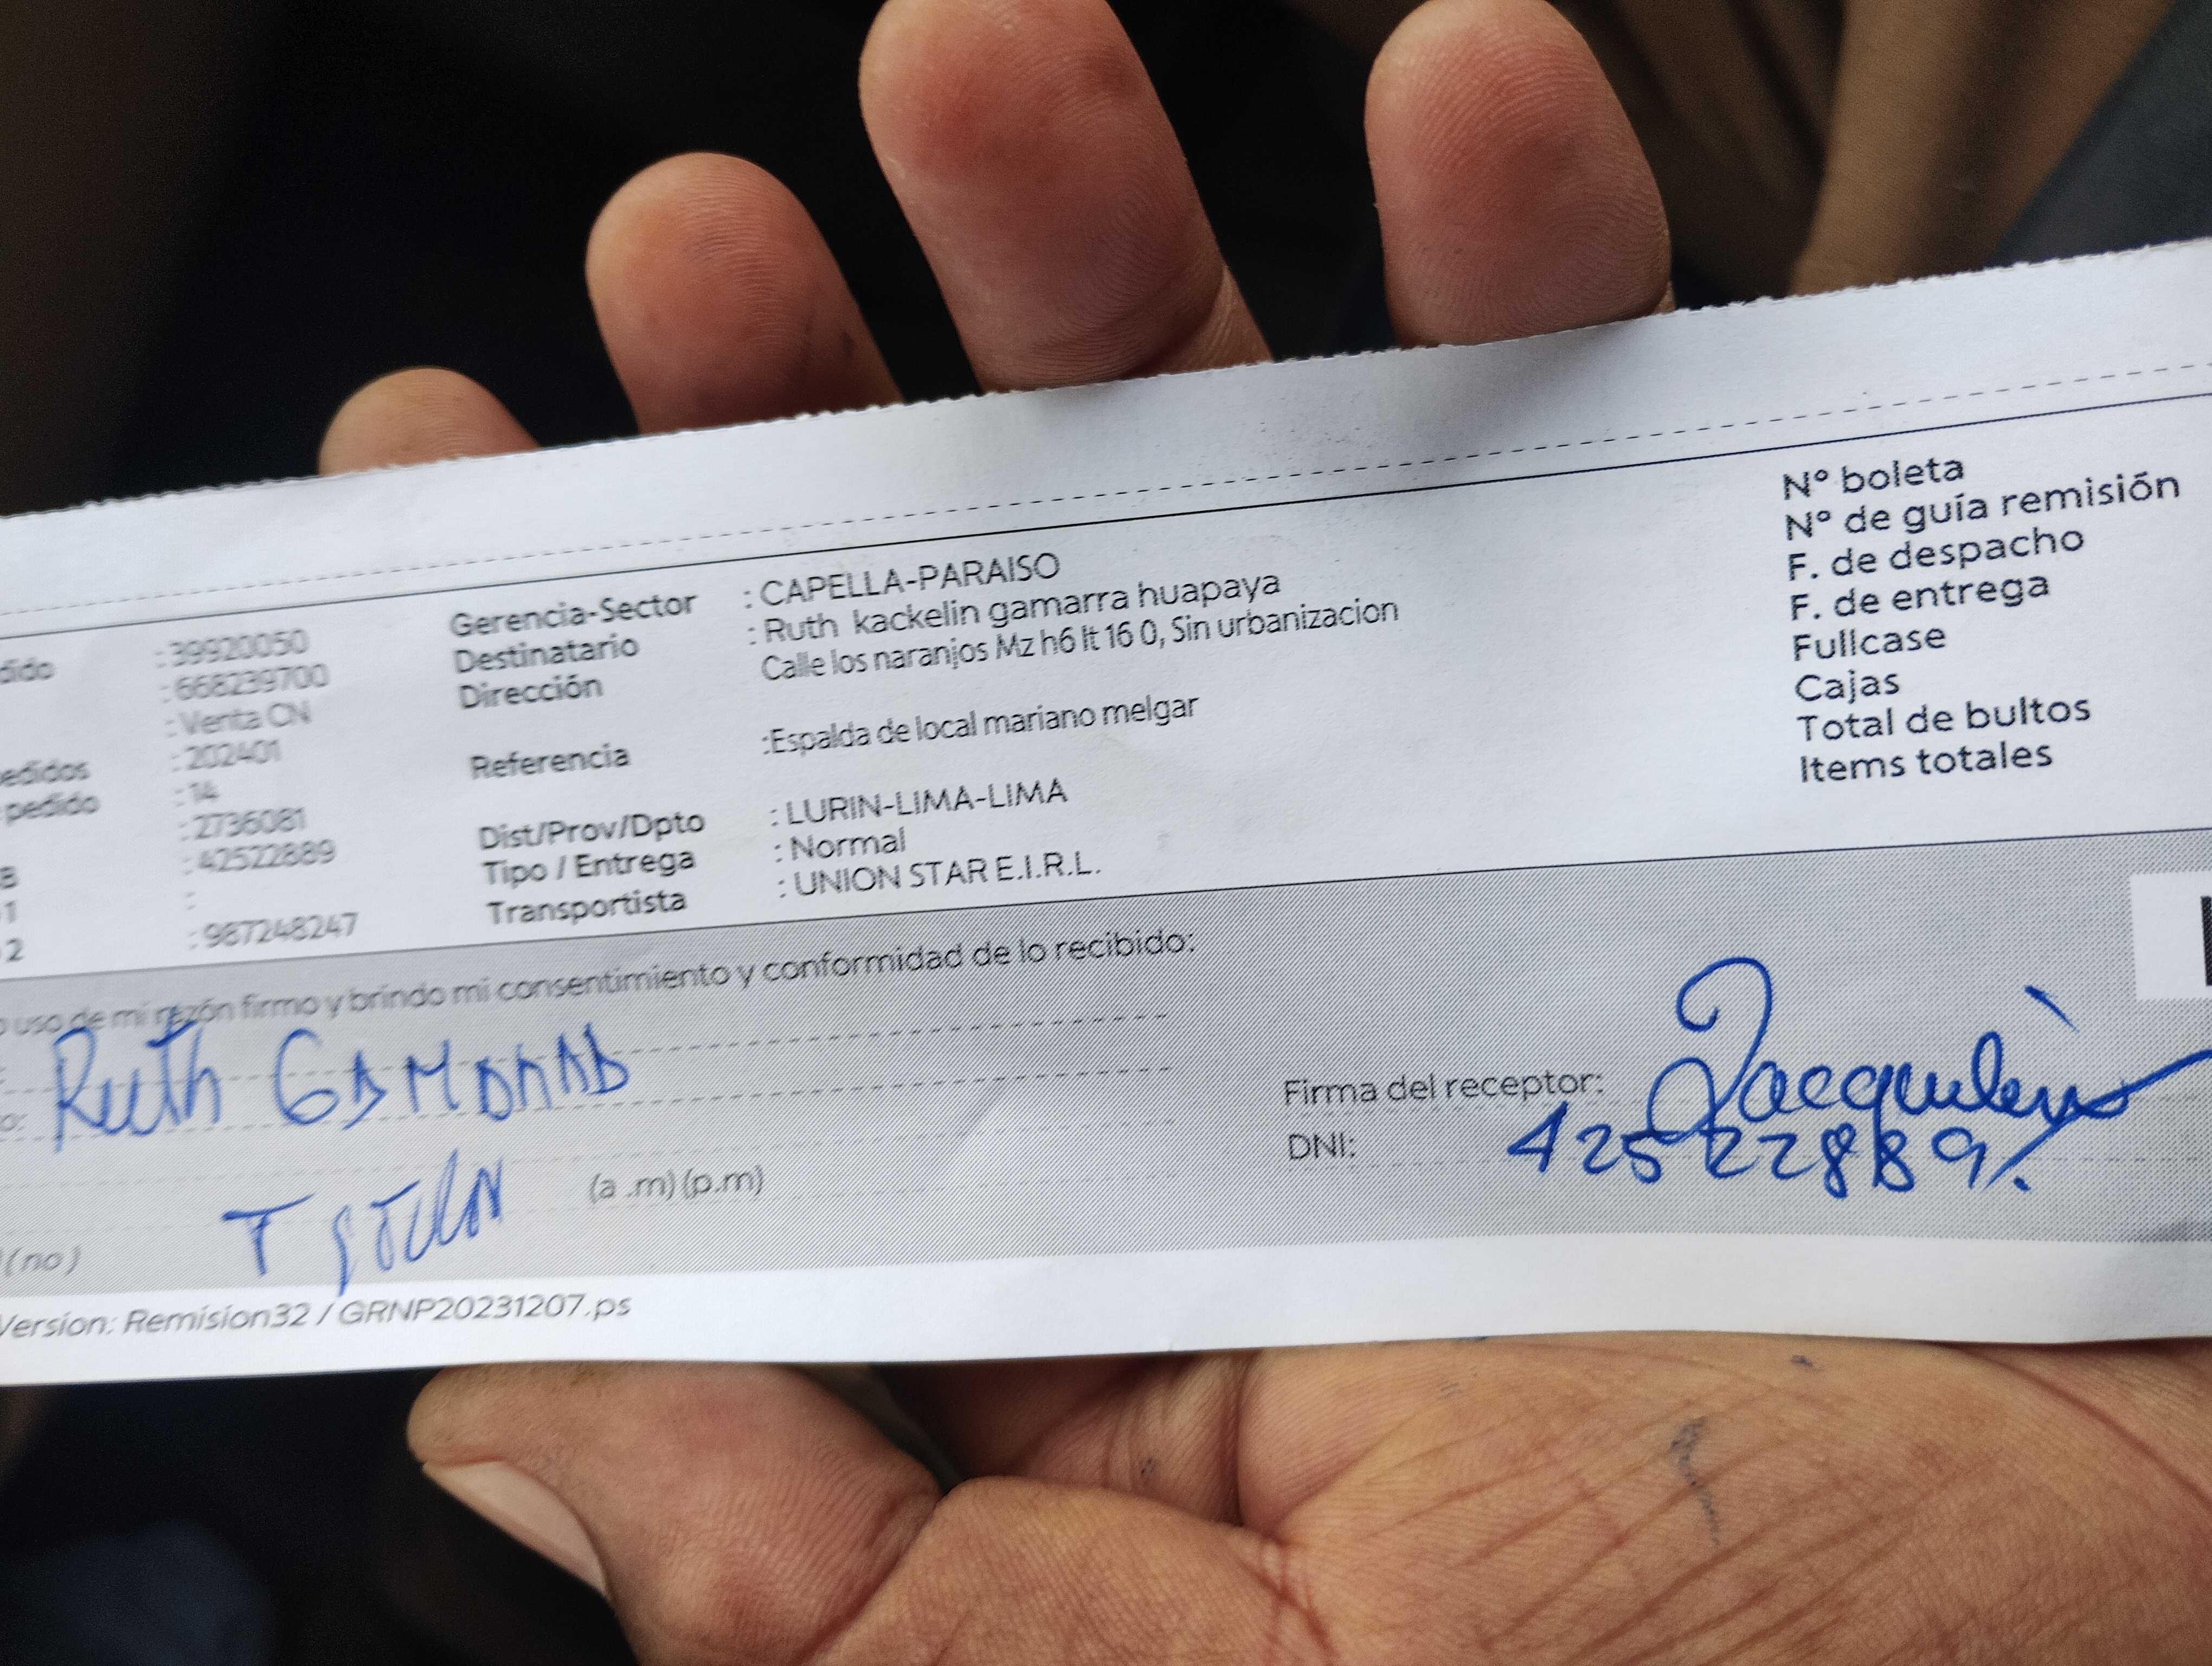 : 39920050
: 668239700
: Venta CN
: 202401
edidos : 14
pedido : 2736081
B : 42522889
1 :
2 : 987248247
Gerencia-Sector : CAPELLA-PARAISO
Destinatario : Ruth kackelin gamarra huapaya
Dirección Calle los naranjos Mz h6 lt 16 0, Sin urbanizacion
Referencia :Espalda de local mariano melgar
Dist/Prov/Dpto : LURIN-LIMA-LIMA
Tipo / Entrega : Normal
Transportista : UNION STAR E.I.R.L.
N° boleta
N° de guía remisión
F. de despacho
F. de entrega
Fullcase
Cajas
Total de bultos
Items totales
uso de mi razón firmo y brindo mi consentimiento y conformidad de lo recibido:
Ruth
Firma del receptor: Jacquelin
DNI: 42522889
(a .m) (p.m)
(no)
Version: Remision32 / GRNP20231207.ps